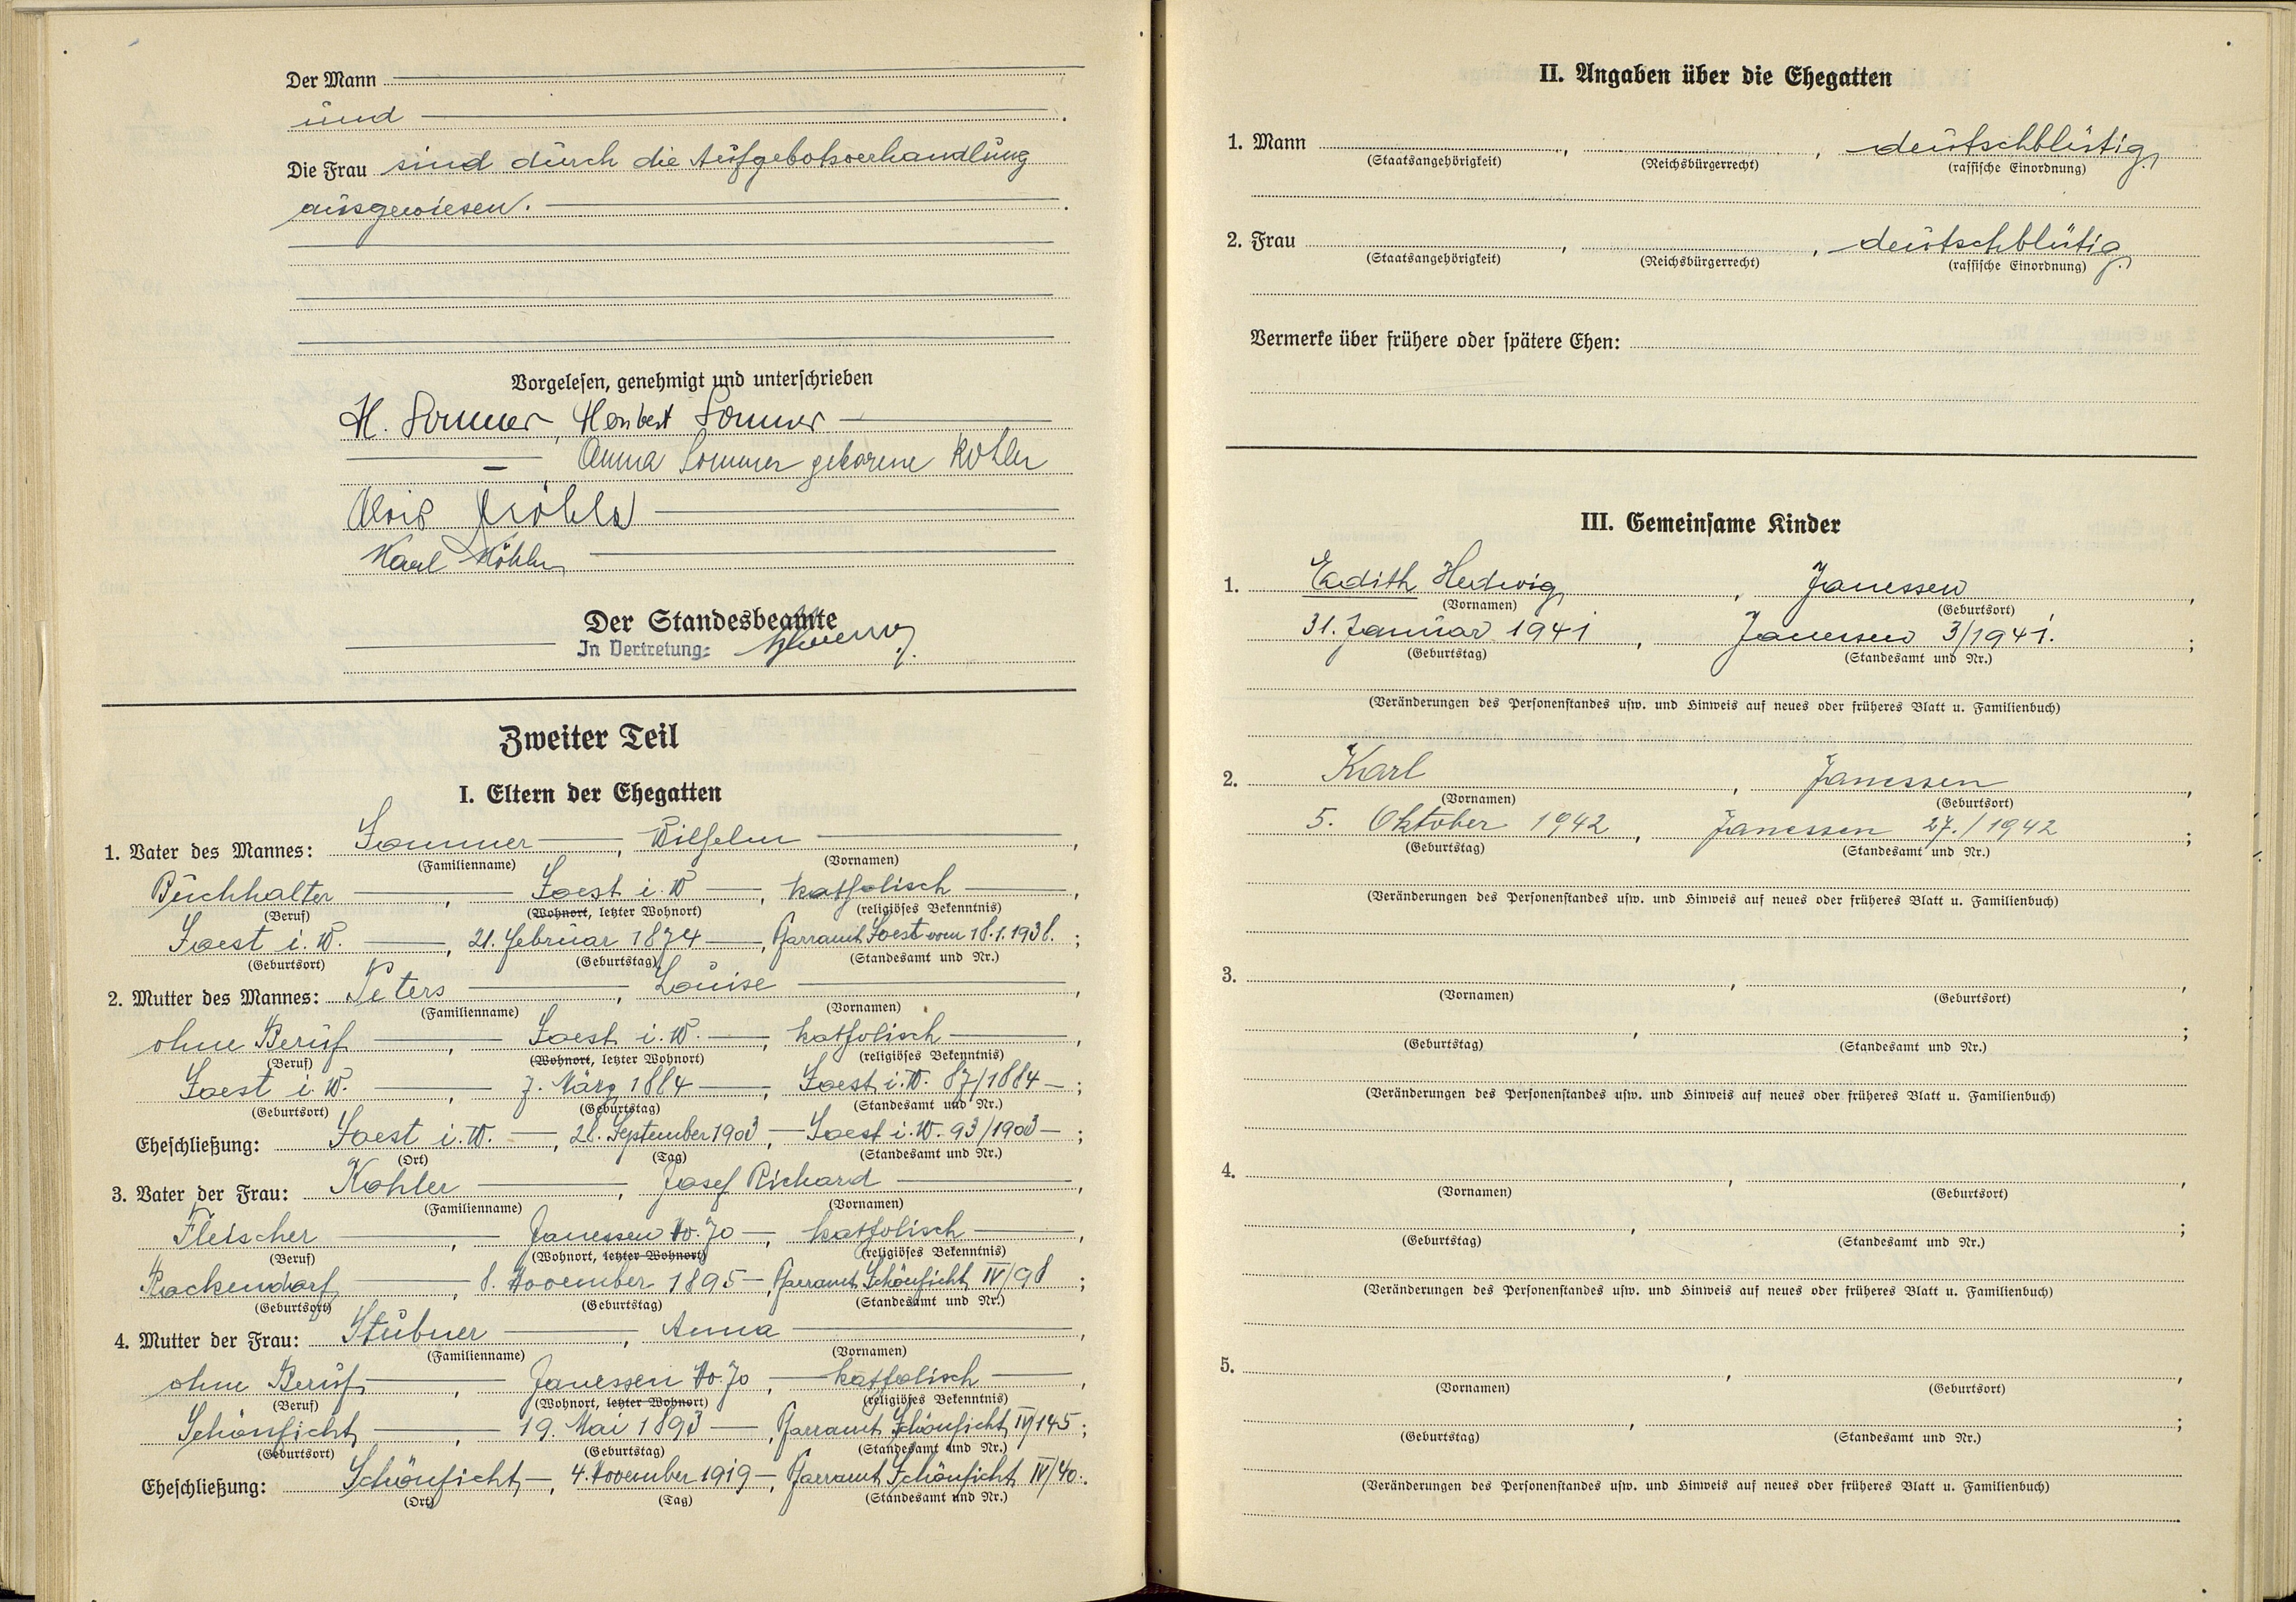 Der Mann
und
Die Frau sind durch die Aufgebotsverhandlung
ausgewiesen.
Vorgelesen, genehmigt und unterschrieben
H. Sommer, Heribert Sommer
Anna Sommer geborene Kohler
Alois
Karl Köhler
Der Standesbeamte
In Vertretung:
Zweiter Teil
I. Eltern der Ehegatten
1. Vater des Mannes: Sommer, Wilhelm,
(Familienname) (Vornamen)
Buchhalter, Soest i. W, katholisch,
(Beruf) (Wohnort, letzter Wohnort) (religiöses Bekenntnis)
Soest i. W., 21. Februar 1874, Pfarramt Soest vom 18.1.1938.;
(Geburtsort) (Geburtstag) (Standesamt und Nr.)
2. Mutter des Mannes: Peters, Louise,
(Familienname) (Vornamen)
ohne Beruf, Soest i. W., katholisch,
(Beruf) (Wohnort, letzter Wohnort) (religiöses Bekenntnis)
Soest i. W., 7. März 1884, Soest i. W. 87/1884;
(Geburtsort) (Geburtstag) (Standesamt und Nr.)
Eheschließung: Soest i. W., 28. September 1903, Soest i. W. 93/1903;
(Ort) (Tag) (Standesamt und Nr.)
3. Vater der Frau: Kohler, Josef Richard,
(Familienname) (Vornamen)
Fleischer, Janessen No. 70, katholisch,
(Beruf) (Wohnort, letzter Wohnort) (religiöses Bekenntnis)
Rockendorf, 8. November 1895, Pfarramt Schönficht IV/98;
(Geburtsort) (Geburtstag) (Standesamt und Nr.)
4. Mutter der Frau: Stübner, Anna,
(Familienname) (Vornamen)
ohne Beruf, Janessen No. 70, katholisch,
(Beruf) (Wohnort, letzter Wohnort) (religiöses Bekenntnis)
Schönficht, 19. Mai 1893, Pfarramt Schönficht IV/145;
(Geburtsort) (Geburtstag) (Standesamt und Nr.)
Eheschließung: Schönficht, 4. November 1919, Pfarramt Schönficht IV/40.
(Ort) (Tag) (Standesamt und Nr.)
II. Angaben über die Ehegatten
1. Mann , , deutschblütig,
(Staatsangehörigkeit) (Reichsbürgerrecht) (rassische Einordnung)
2. Frau , , deutschblütig,
(Staatsangehörigkeit) (Reichsbürgerrecht) (rassische Einordnung)
Vermerke über frühere oder spätere Ehen:
III. Gemeinsame Kinder
1. Eedith Hedwig, Janessen,
(Vornamen) (Geburtsort)
31. Januar 1941, Janessen 3/1941.;
(Geburtstag) (Standesamt und Nr.)
(Veränderungen des Personenstandes usw. und Hinweis auf neues oder früheres Blatt u. Familienbuch)
2. Karl, Janessen,
(Vornamen) (Geburtsort)
5. Oktober 1942, Janessen 27./1942;
(Geburtstag) (Standesamt und Nr.)
(Veränderungen des Personenstandes usw. und Hinweis auf neues oder früheres Blatt u. Familienbuch)
3. , ,
(Vornamen) (Geburtsort)
, ;
(Geburtstag) (Standesamt und Nr.)
(Veränderungen des Personenstandes usw. und Hinweis auf neues oder früheres Blatt u. Familienbuch)
4. , ,
(Vornamen) (Geburtsort)
, ;
(Geburtstag) (Standesamt und Nr.)
(Veränderungen des Personenstandes usw. und Hinweis auf neues oder früheres Blatt u. Familienbuch)
5. , ,
(Vornamen) (Geburtsort)
, ;
(Geburtstag) (Standesamt und Nr.)
(Veränderungen des Personenstandes usw. und Hinweis auf neues oder früheres Blatt u. Familienbuch)